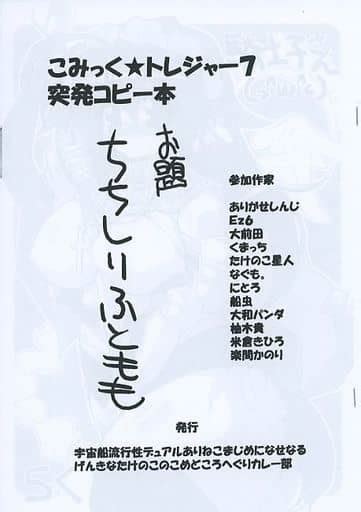 こみっく★トレジャー7
突発コピー本
お題
ちちしりふともも
参加作家
ありがせしんじ
Ez6
大前田
くまっち
たけのこ星人
なぐも。
にとろ
船虫
大和パンダ
柚木貴
米倉きひろ
楽間かのり
発行
宇宙船流行性デュアルありねこまじめになせなる
げんきなたけのこのこめどころへぐりカレー部